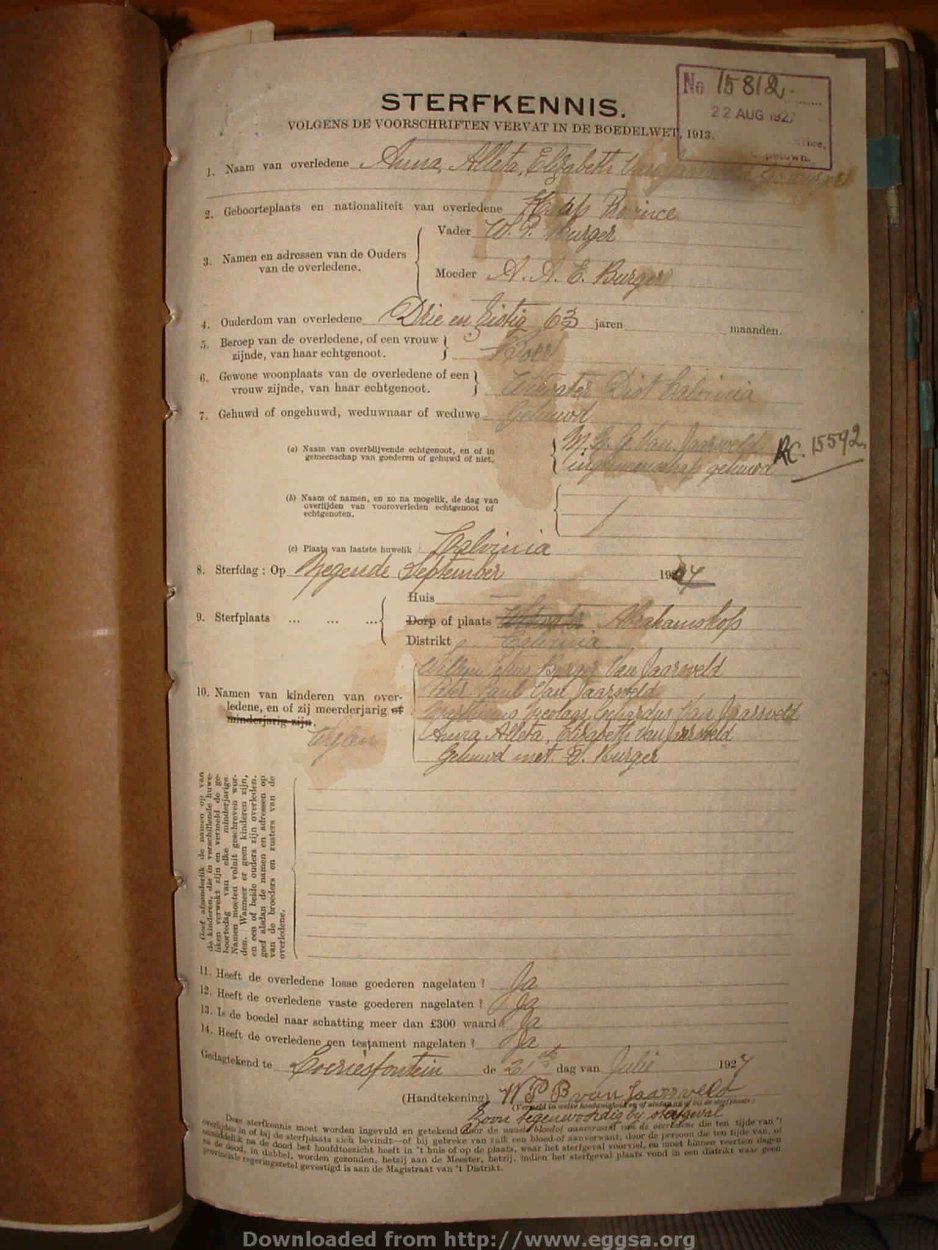 No 15812
22 AUG 1927
STERFKENNIS.
VOLGENS DE VOORSCHRIFTEN VERVAT IN DE BOEDELWET, 1913.
1. Naam van overledene Anna, Alleta, Elizabeth Van
2. Geboorteplaats en nationaliteit van overledene Kaap Province
3. Namen en adressen van de Ouders van de overledene.
Vader W. P. Burger
Moeder A. A. E. Burger
4. Ouderdom van overledene Drie en Sistig 63 jaren maanden.
5. Beroep van de overledene, of een vrouw zijnde, van haar echtgenoot. Boer
6. Gewone woonplaats van de overledene of een vrouw zijnde, van haar echtgenoot. Dist Calvinia
7. Gehuwd of ongehuwd, weduwnaar of weduwe Gehuwd
(a) Naam van overblijvende echtgenoot, en of in gemeenschap van goederen of gehuwd of niet.
Van Jaarsveld
gehuwd
RC. 15592
(b) Naam of namen, en zo na mogelik, de dag van overlijden van vooroverleden echtgenoot of echtgenoten.
(c) Plaats van laatste huwelik Calvinia
8. Sterfdag : Op Negende September 192
9. Sterfplaats ... ... ...
Huis
Dorp of plaats Abrahamskop
Distrikt Calvinia
10. Namen van kinderen van overledene, en of zij meerderjarig of minderjarig zijn.
Willem Petrus Burger Van Jaarsveld
Peter Paul Van Jaarsveld
Marthinus Nicolaas Gerhardus Van Jaarsveld
Anna Alleta, Elizabeth van Jaarsveld
Gehuwd met Burger
Geef afzonderlik de namen op van de kinderen, die in verschillende huweliken verwekt zijn en vermeld de geboortedag van elke minderjarige. Namen moeten voluit geschreven worden. Wanneer er geen kinderen zijn, en een of beide ouders zijn overleden, geef alsdan de namen en adressen op van de broeders en zusters van de overledene.
11. Heeft de overledene losse goederen nagelaten ? Ja
12. Heeft de overledene vaste goederen nagelaten ? Ja
13. Is de boedel naar schatting meer dan £300 waard? Ja
14. Heeft de overledene een testament nagelaten ? Ja
Gedagtekend te Loeriesfontein de 21 dag van Julie 1927
(Handtekening) W P B van Jaarsveld
Zoon tegenwoordig by sterfgeval
Deze sterfkennis moet worden ingevuld en getekend door de naaste bloed of aanverwant van de overledene die ten tijde van 't
overlijden in of bij de sterfplaats zich bevindt—of bij gebreke van zulk een bloed-of aanverwant, door de persoon die ten tijde van, of
onmiddellik na de dood het hoofdtoezicht heeft in 't huis of op de plaats, waar het sterfgeval voorviel, en moet binnen veertien dagen
na de dood, in dubbel, worden gezonden, hetzij aan de Meester, hetzij, indien het sterfgeval plaats vond in een distrikt waar geen
provinciale regeringszetel gevestigd is aan de Magistraat van 't Distrikt.
Downloaded from http://www.eggsa.org